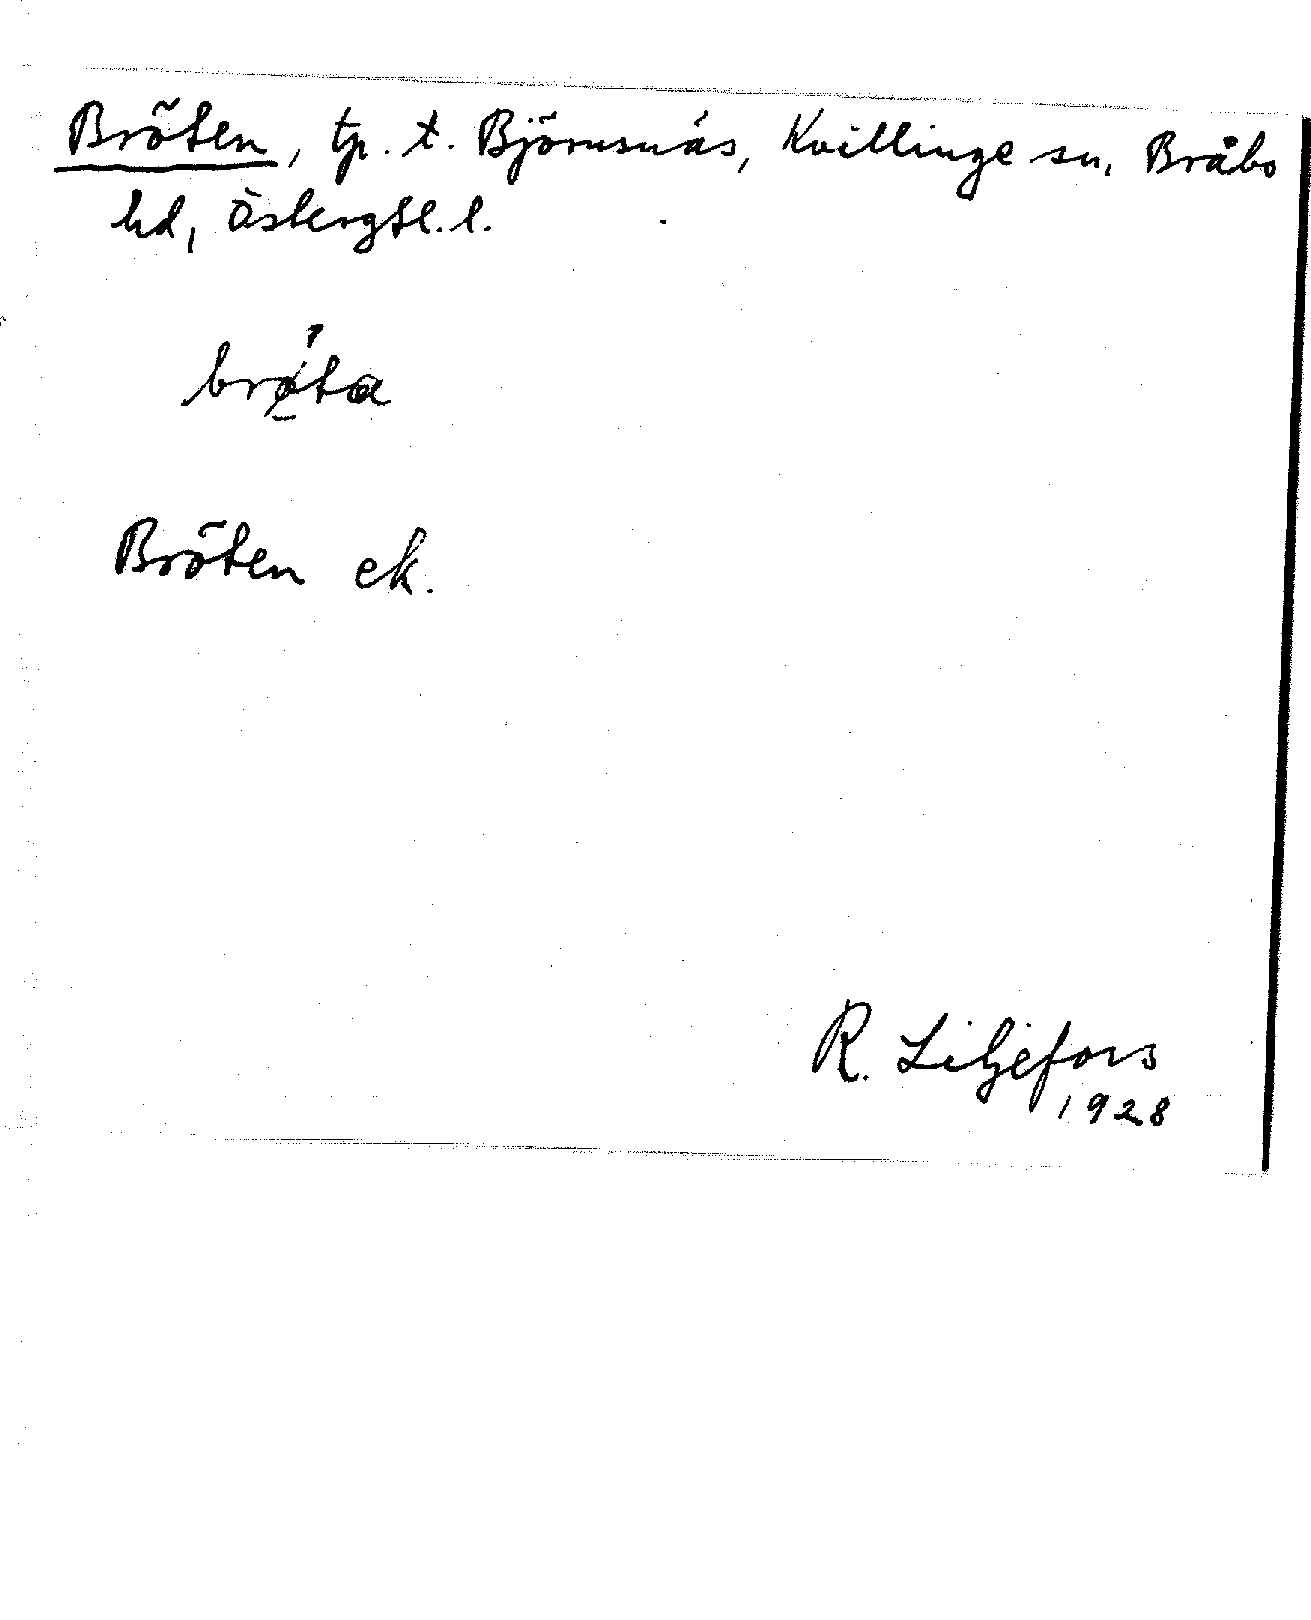 Bröten, tp. t. Björnsnäs, Kvillinge sn, Bråbo
hd, Östergtl. l.
brø̀ta
Bröten ek.
R. Liljefors
1928